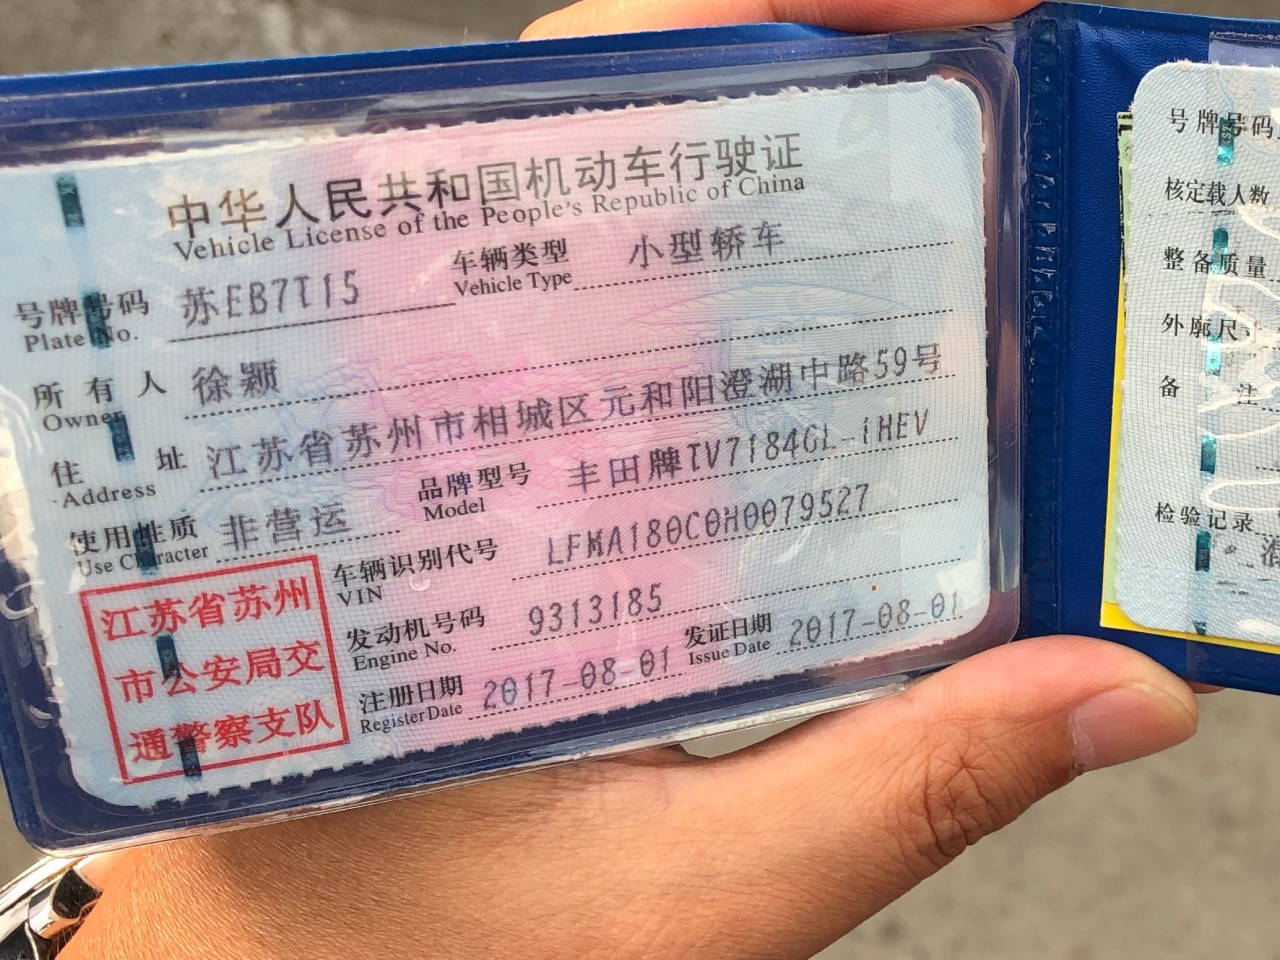 中华人民共和国机动车行驶证
Vehicle License of the People's Republic of China
号牌号码 苏EB7T15 车辆类型 小型轿车
Plate No. Vehicle Type
所有人 徐颖
Owner
住址 江苏省苏州市相城区元和阳澄湖中路59号
Address
使用性质 非营运 品牌型号 丰田牌TV7184GL-iHEV
Use Character Model
车辆识别代号 LFMA180C0H0079527
VIN
发动机号码 9313185
Engine No.
注册日期 2017-08-01 发证日期 2017-08-01
Register Date Issue Date
江苏省苏州
市公安局交
通警察支队
号牌号码
核定载人数
整备质量
外廓尺寸
备注
检验记录